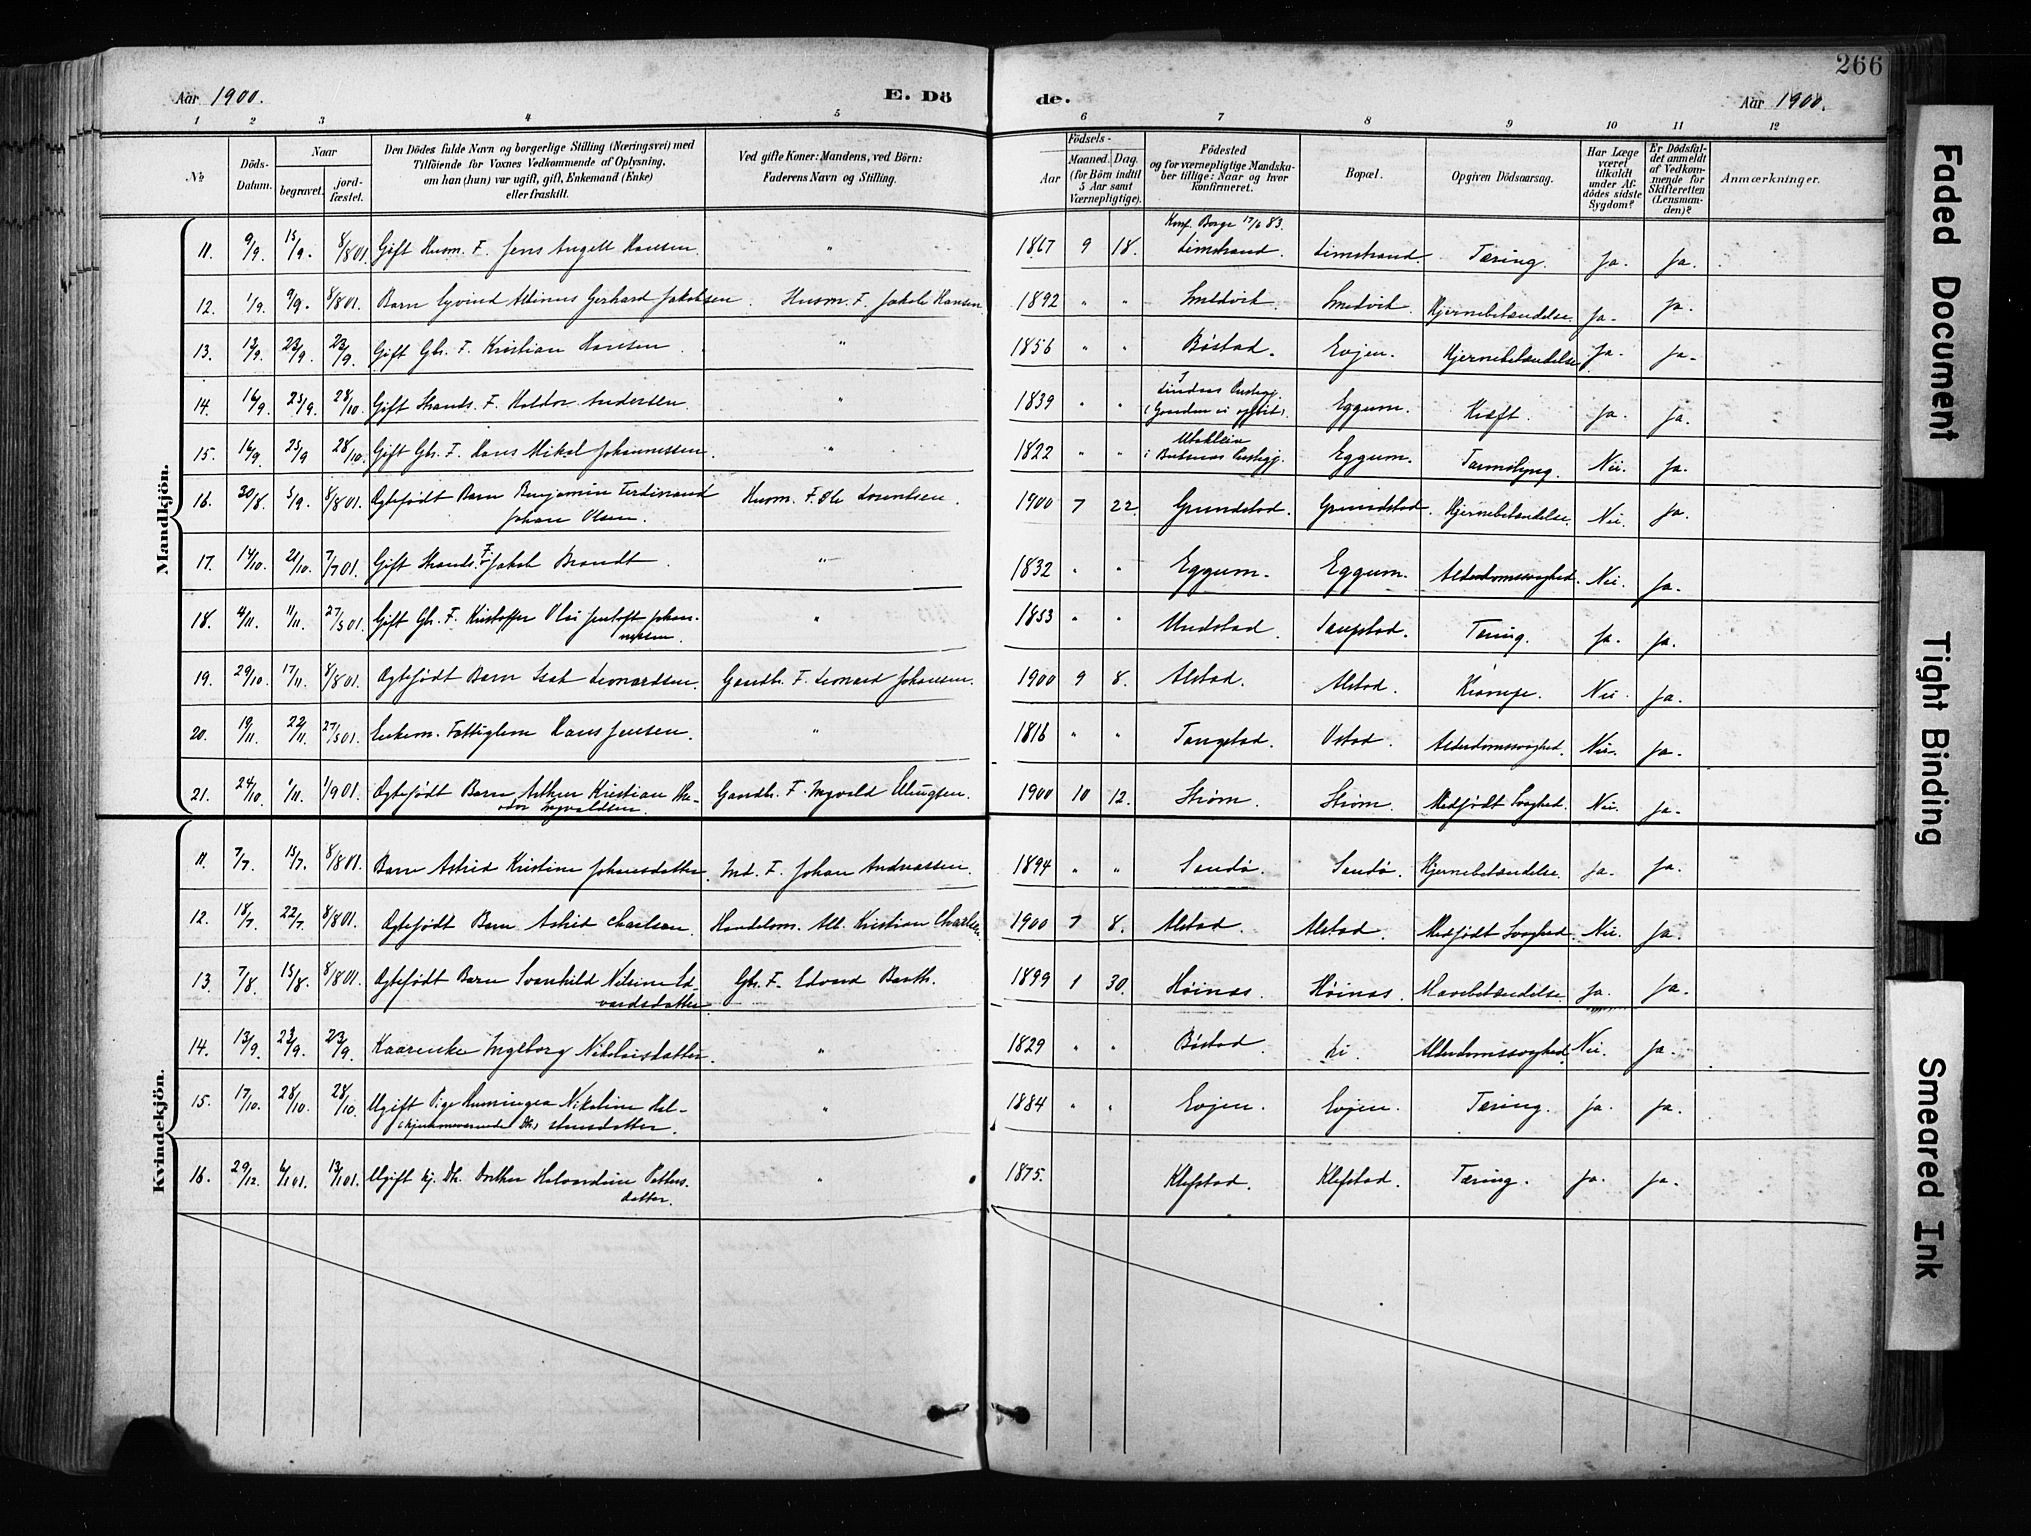 266
Aar 1900.
E. Dö
de.
Aar 1900.
1 2 3 4 5 6 7 8 9 10 11 12
№
Döds-Datum.
Naar
begravet.
jord-fæstet.
Den Dödes fulde Navn og borgerlige Stilling (Næringsvei) med
Tilföiende for Voxnes Vedkommende af Oplysning,
om han (hun) var ugift, gift, Enkemand (Enke)
eller fraskilt.
Ved gifte Koner: Mandens, ved Börn:
Faderens Navn og Stilling.
Födsels-
Aar
Maaned. Dag.
(for Börn indtil
5 Aar samt
Værnepligtige).
Födested
og for værnepligtige Mandska-
ber tillige: Naar og hvor
Konfirmeret.
Bopæl.
Opgiven Dödsaarsag.
Har Læge
været
tilkaldt
under Af-
dödes sidste
Sygdom?
Er Dödsfal-
det anmeldt
af Vedkom-
mende for
Skifteretten
(Lensman-
den)?
Anmærkninger.
Mandkjön.
Konf. Borge 17/6 83.
11. 9/9. 15/9. 8/8 01. Gift Husm. F. Jens Angell Hansen " 1867 9 18. Limstrand. Limstrand. Tæring. Ja. Ja.
12. 1/9. 9/9. 8/8 01. Barn Eyvind Albinus Gerhard Jakobsen. Husm. F. Jakob Hansen 1892 " " Smedvik. Smedvik. Hjernebetændelse. Ja. Ja.
13. 13/9. 23/9. 23/9. Gift Gbr. F. Kristian Hansen. " 1856 " " Böstad. Evjen. Hjernebetændelse Ja. Ja.
14. 16/9. 23/9. 28/10. Gift Strands. F. Haldor Andersen. " 1839 " " Lindaas Prestegj. Eggum. Kræft. Ja. Ja.
15. 16/9. 25/9 28/10. Gift Gbr. F. Hans Mikal Johannessen. " 1822 " " i Buksnæs Prestegj. Eggum. Tarmslyng. Nei. Ja.
16. 30/8. 5/9. 8/8 01. Ægtefødt Barn Benjamin Ferdinand Husm. F. Ole Lorentsen. 1900 7 22. Grundstad. Grundstad. Hjernebetændelse. Nei. Ja.
Johan Olsen.
17. 14/10. 21/10. 7/7 01. Gift Strands. F. Jakob Brandt. " 1832 " " Eggum. Eggum. Alderdomssvaghed. Nei. Ja.
18. 4/11. 11/11. 27/5 01. Gift Gbr. F. Kristoffer Olai Jentoft Johan- " 1853 " " Unstad. Saupstad. Tæring. Ja. Ja.
nessen.
19. 29/10. 17/11. 8/8 01. Ægtefødt Barn Isak Leonardsen. Gaardbr. F. Leonard Johansen. 1900 9 8. Alstad. Alstad. Krampe. Nei. Ja.
20. 19/11. 22/11. 27/5 01. Enkem. Fattiglem Hans Jensen. " 1816 " " Tangstad. Ostad. Alderdomssvaghed. Nei. Ja.
21. 24/10. 1/11. 1/9 01. Ægtefødt Barn Arthur Kristian The- Gaardbr. F. Ingvald Ellingsen. 1900 10 12. Strøm. Strøm. Medfødt Svaghed. Nei. Ja.
odor Ingvaldsen.
Kvindekjön.
11. 7/7. 15/7. 8/8 01. Barn Astrid Kristine Johansdatter. Ind. F. Johan Andreassen. 1894 " " Sandø. Sandø. Hjernebetændelse. Ja. Ja.
12. 18/7. 22/7. 8/8 01. Ægtefødt Barn Astrid Charlsen. Handelsm. Alb. Kristian Charlsen 1900 7 8. Alstad. Alstad. Medfødt Svaghed. Nei. Ja.
13. 7/8. 15/8. 8/8 01. Ægtefødt Barn Svanhild Nilsine Ed- Gbr. F. Edvard Barth. 1899 1 30. Høinæs. Høinæs. Mavebetændelse Ja. Ja.
vardsdatter.
14. 13/9. 23/9. 23/9. Kaarenke Ingeborg Nikolaisdatter. " 1829 " " Böstad. Li Alderdomssvaghed. Nei. Ja.
15. 17/10. 28/10. 28/10. Ugift Pige Hummingea Nikoline Hal- " 1884 " " Evjen. Evjen. Tæring. Ja. Ja.
(hjemmeværende Dtr.) steinsdatter.
16. 29/12. 6/1 01. 13/1 01. Ugift hj. Dtr. Dorthea Halvardine Petters- " 1875. Klefstad. Klefstad. Tæring. Ja. Ja.
datter.
Faded Document
Tight Binding
Smeared Ink